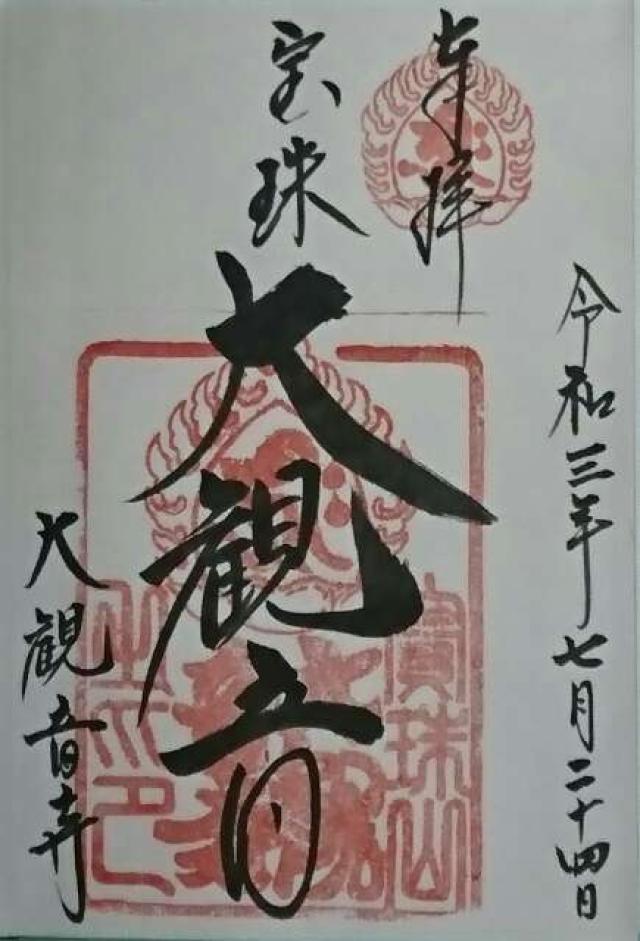 奉拝
令和三年七月二十四日
宝珠
大観音
大観音寺
寶珠山
之印